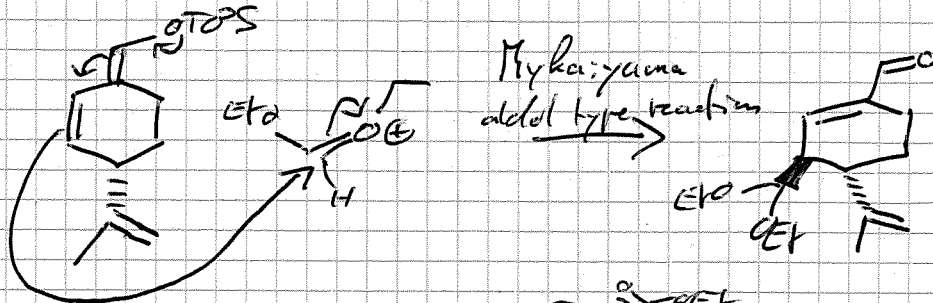 OTBPS
EtO
O⊕
H
Mykaiyama
aldol type reaction
O
EtO
OEt
OEt